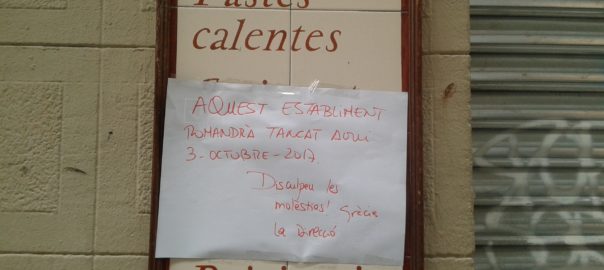 Pastes
calentes
AQUEST ESTABLIMENT
ROMANDRÀ TANCAT AVUI
3-OCTUBRE-2017
Disculpeu les
molèsties! Gràcies
La Direcció